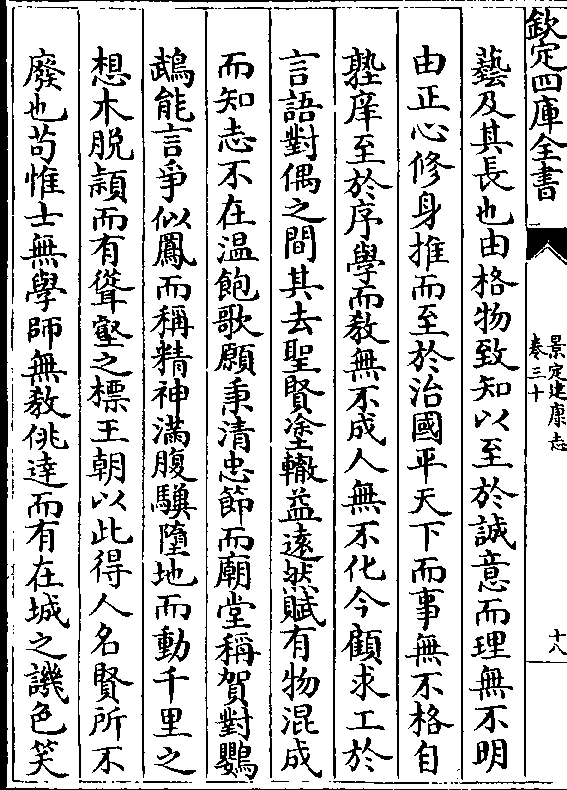 欽定四庫全書
景定建康志
卷三十
十八
藝及其長也由格物致知以至於誠意而理無不明
由正心修身推而至於治國平天下而事無不格自
塾庠至於序學而教無不成人無不化今顧求工於
言語對偶之間其去聖賢塗轍益遠然賦有物混成
而知志不在溫飽歌願秉清忠節而廟堂稱賀對鸚
鵡能言爭似鳳而稱精神滿腹驥墮地而動千里之
想木脫頴而有聳壑之標王朝以此得人名賢所不
廢也苟惟士無學師無教佻達而有在城之譏色笑